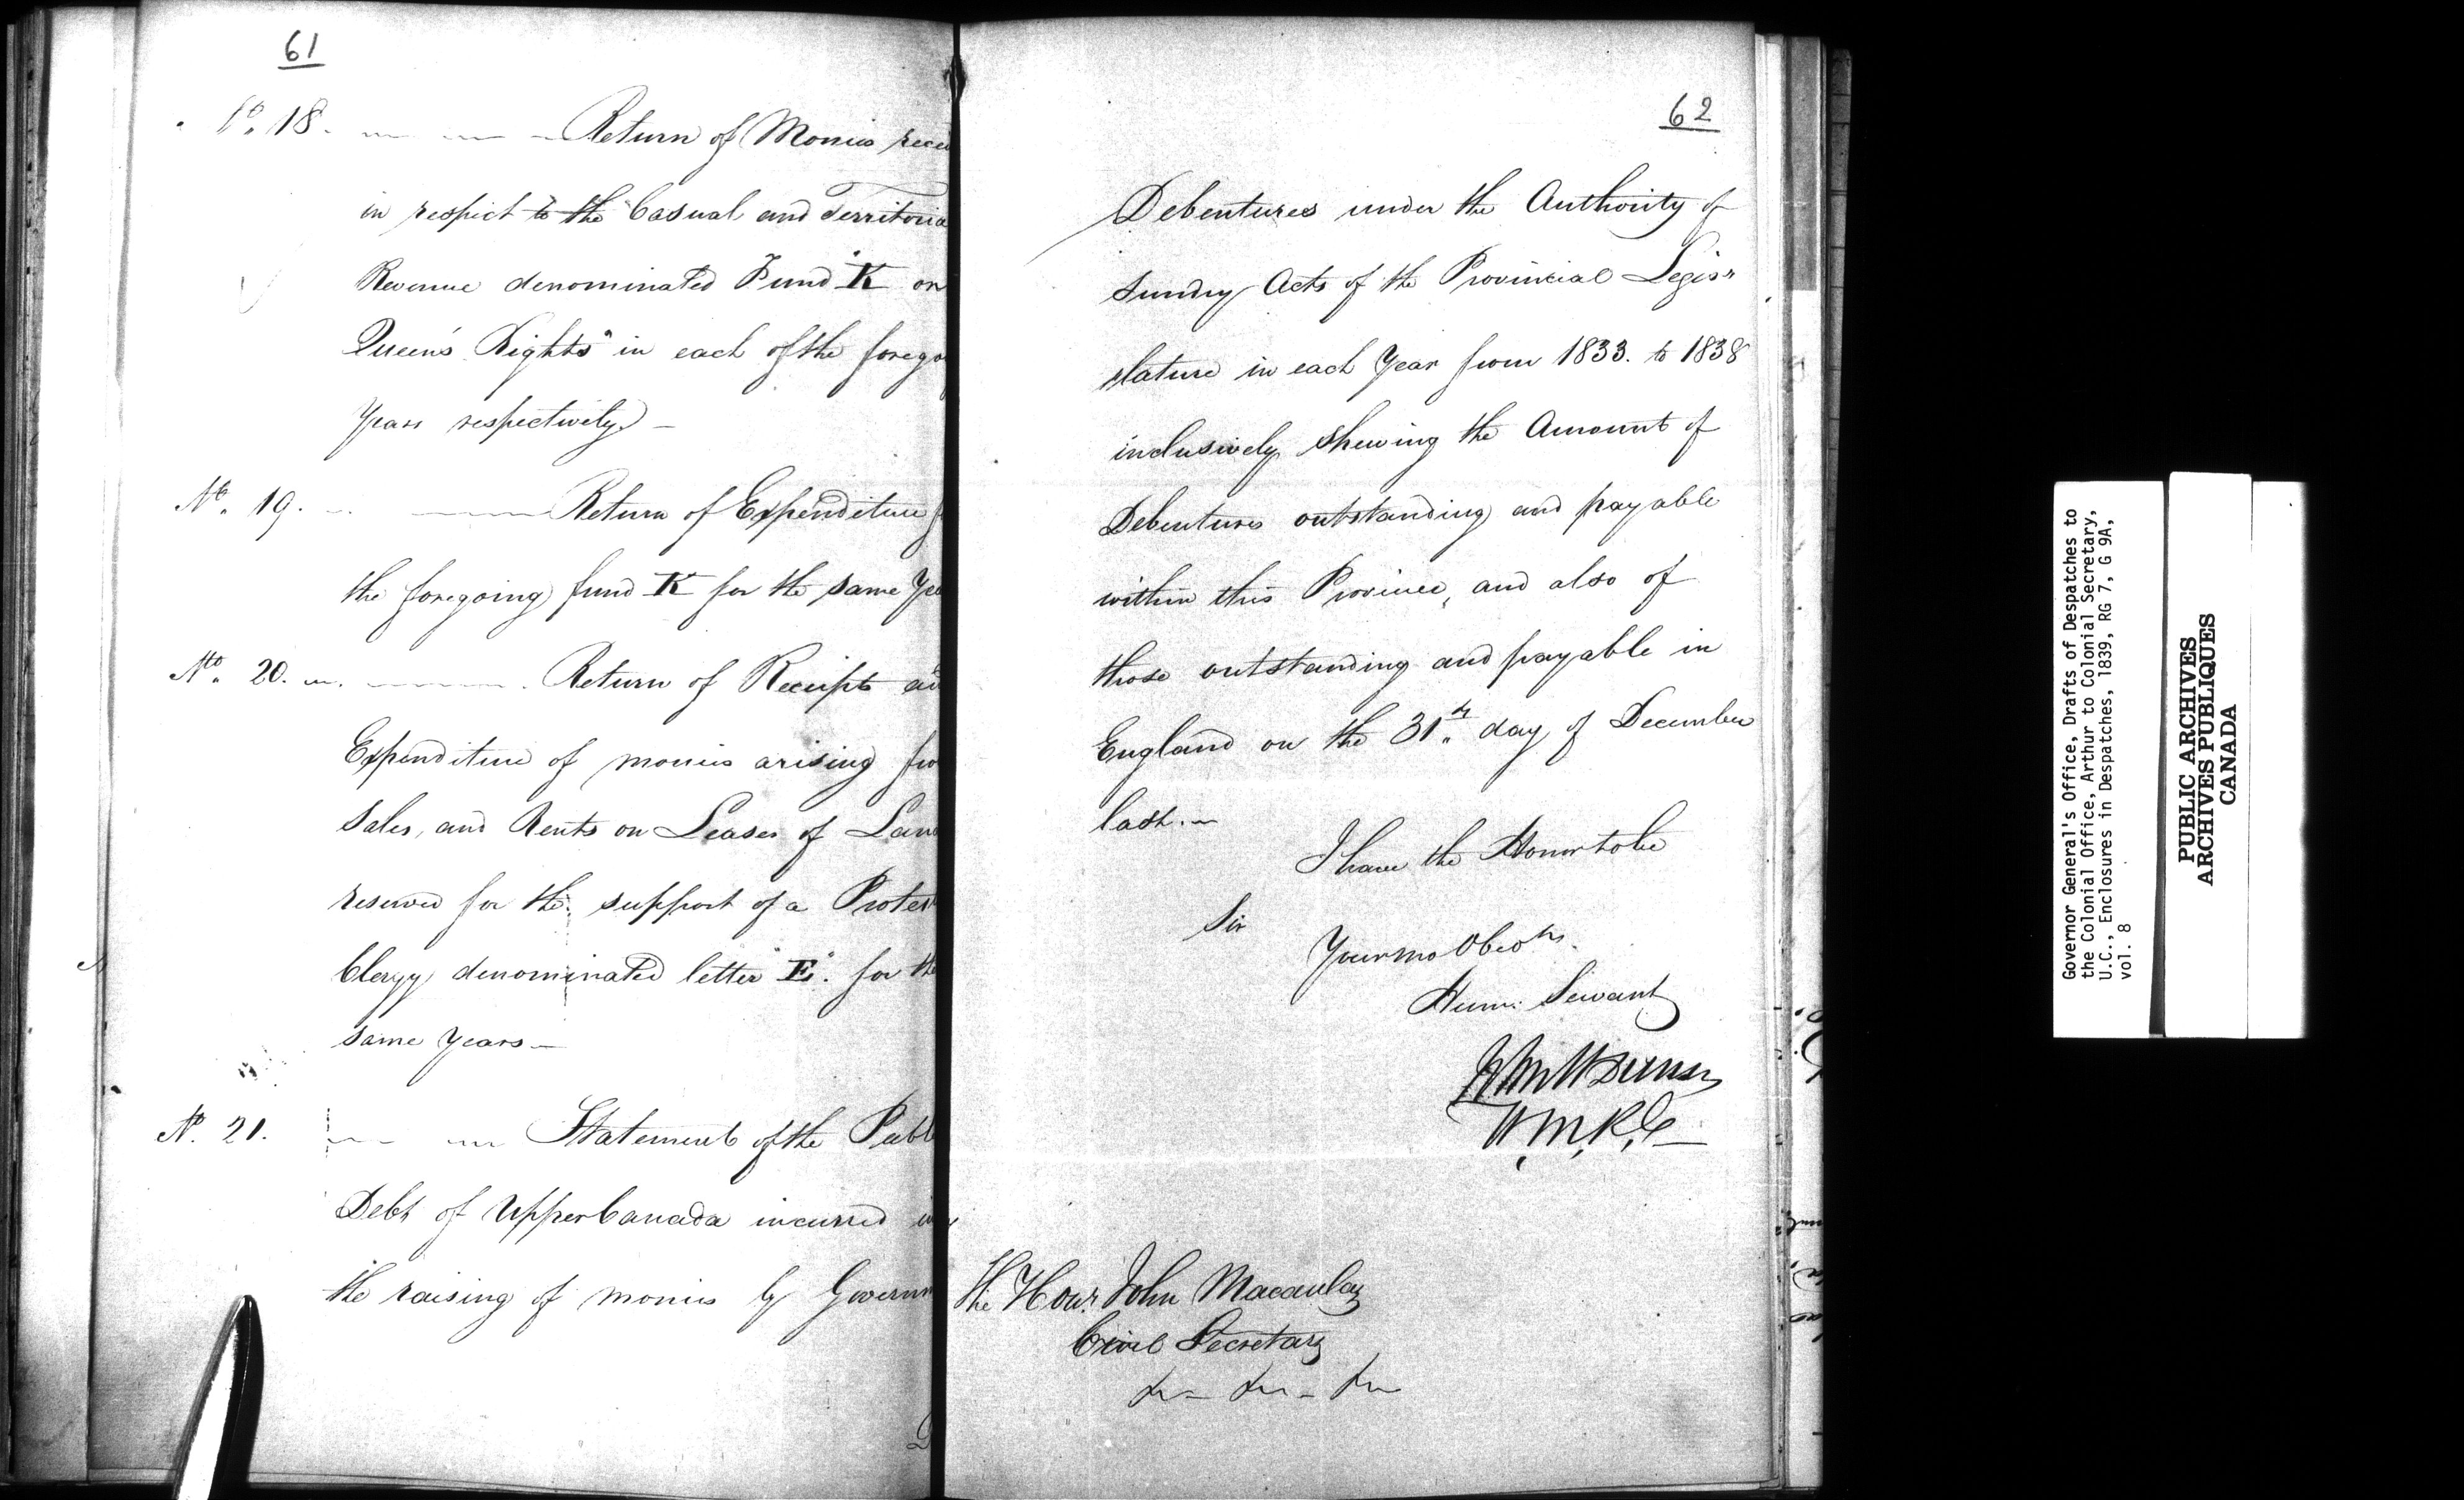 61
No. 18. Return of Monies recei
in respect to the Casual and Territoria
Revenue denominated Fund "K on
Queen's Rights" in each of the forego
Years respectively —
No. 19. Return of Expenditure f
the foregoing fund K for the same Yea
No. 20. Return of Receipts an
Expenditure of monies arising fro
Sales, and Rents on Leases of Lan
reserved for the support of a Protest
Clergy denominated letter "E". for the
same Years —
No. 21. Statement of the Publ
Debt of Upper Canada incurred in
the raising of monies by Governm
D
62
Debentures under the Authority of
Sundry Acts of the Provincial Legis
lature in each Year from 1833. to 1838
inclusively shewing the Amount of
Debentures outstanding and payable
within this Province, and also of
those outstanding and payable in
England on the 31st day of December
last. —
I have the Honor to be
Sir
Your mo Obedt
Hum: Servant
John H Dunn
H. M. R. G
The Honr. John Macaulay
Civil Secretary
Governor General's Office, Drafts of Despatches to
the Colonial Office, Arthur to Colonial Secretary,
U.C., Enclosures in Despatches, 1839, RG 7, G 9A,
vol. 8
PUBLIC ARCHIVES
ARCHIVES PUBLIQUES
CANADA